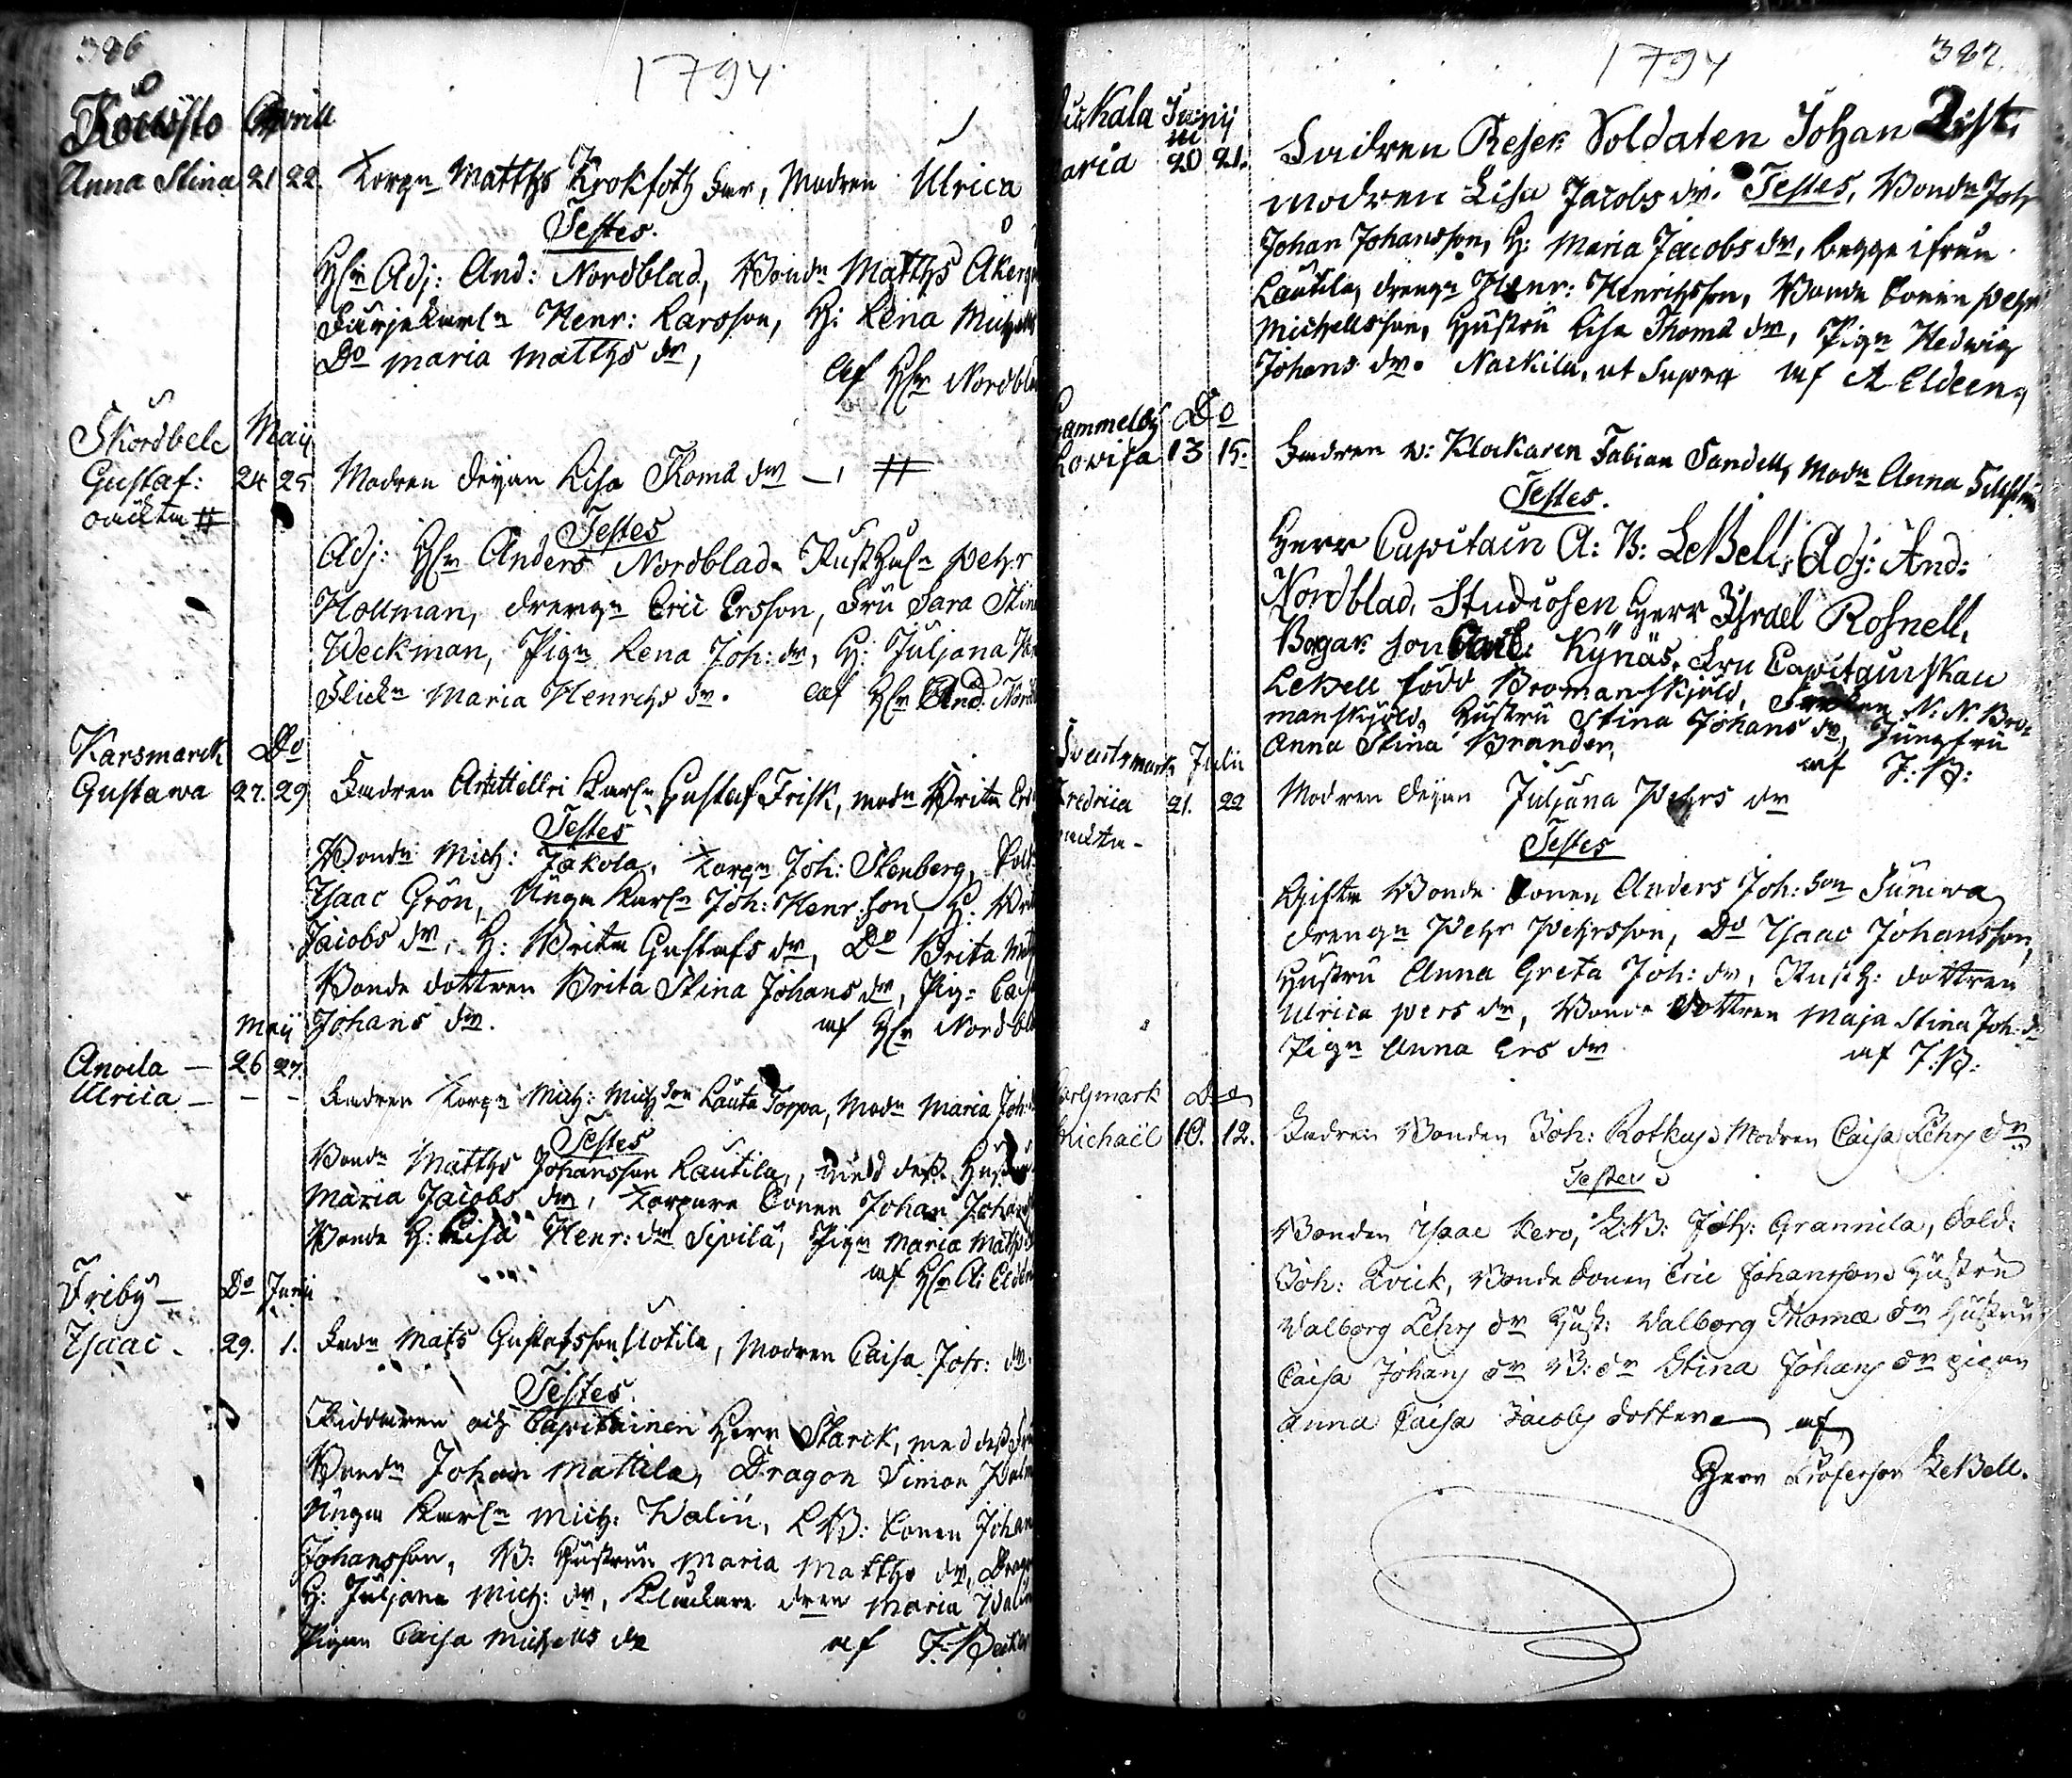 386
1794
Åkoisto Aprill
Anna Stina 21 22. Torpn Matths Krokfoth Far, Modren Ulrica
Testes.
Hr Adj: And: Nordblad, Bondn Matths Åker
Färjekarln Henr: Larsson, H: Lena Michells
Do Maria Matths dr,
af Hr Nordbla
Skordbele Maij
Gustaf: 24 25 Modren Deijan Lisa Thoma dr — #
oäckta #
Testes
Adj: Hr Anders Nordblad. Rusthåln Pehr
Hollman, Drengn Eric Ersson, Fru Sara Stin
Weckman, Pign Lena Joh: dr, H: Juljana
Flickn Maria Henrichs dr. af Hr And: Nord
Karsmarck Do
Gustawa 27. 29 Fadren Artilleri Karln Gustaf Frisk, modn Brita
Testes
Bondn Mich: Jakola, Torpn Joh: Stenberg,
Isaac Grön, Unga Karln Joh: Henr:son, H:
Jacobs dr, H: Brita Gustafs dr, Do Brita
Bonde dottren Brita Stina Johans dr, Pig:
Johans dr. af Hr Nordbla
Maij
Anoila — 26 27.
Ulrica — — — Fadren Torpn Mich: Mich son Lauta Torpa, Modn Maria Joh:
Testes
Bondn Matths Johansson Lautila, med dess Hustru
Maria Jacobs dr, Torpare Sonen Johan Johans
Bonde H: Lisa Henr: dr Sipilä, Pign Maria Maths
af Hr A: Elden
Friby — Do Junii
Isaac. 29. 1. Fadn Mats Gustafsson Uotila, Modren Caisa Joh: dr.
Testes.
Riddaren och Capitainen Herr Starck, med dess
Bondn Johan Mattila, Dragon Simon
Unga Karln Mich: Walin, LB: Sonen Johan
Johansson, B: Hustrun Maria Matths dr, Drag
H: Juljana Mich: dr, Klockare dren Maria Walin
Pigan Caisa Michells dr af F: Becker
1794 387.
ukala Junij
aria 20 21. Fadren Reser: Soldaten Johan Qvist.
modren Lisa Jacobs dr. Testes, Bondn Joh
Johan Johansson, H: Maria Jacobs dr, begge ifrån
Lautila, drengn Henr: Henrichsson, Bonde Sonen Pehr
Michellsson, Hustru Lisa Thoma dr, Pign Hedwig
Johans dr. Nackila, ut Supra af A Eldeen,
Gammelby Do
Lovisa 13 15. Fadren v: Klockaren Fabian Sandell, Modn Anna
Testes.
Herr Capitain A: B: LeBell, Adj: And:
Nordblad, Studiosen Herr Israel Rosnell,
Bogar son Carl Kÿnäs, Fru Capitainskan
LeBell född Bromanskjöld, Fröken N: N. Bro:
manskjöld, Hustru Stina Johans dr, Jungfru
Anna Stina Brander,
af J: B:
Svartsmark Julii
Fredrica 21. 22 Modren Deijan Juljana Pehrs dr
oäckta -
Testes
Gifta Bonde Sonen Anders Joh: son Juniwa,
Drengn Pehr Pehrsson, Do Isaac Johansson,
Hustru Anna Greta Joh: dr, Rusth: dottren
Ulrica Pers dr, Bonde dottren Maja Stina Joh: dr
Pign Anna Ers dr af J: B:
Karsmark Do
Michaël 10. 12. Fadren Bonden Joh: Rotkus Modren Caisa Pehrs dr
Testes
Bonden Isaac Kero, L:B: Joh: Grannila, Sold:
Joh: Qvick, Bonde Sonen Eric Johansson Hustru
Valborg Pehrs dr Hust: Valborg Thomæ dr Hustru
Caisa Johans dr B: dr Stina Johans dr pigan
Anna Caisa Jacobs dotter af
Herr Professor LeBell.